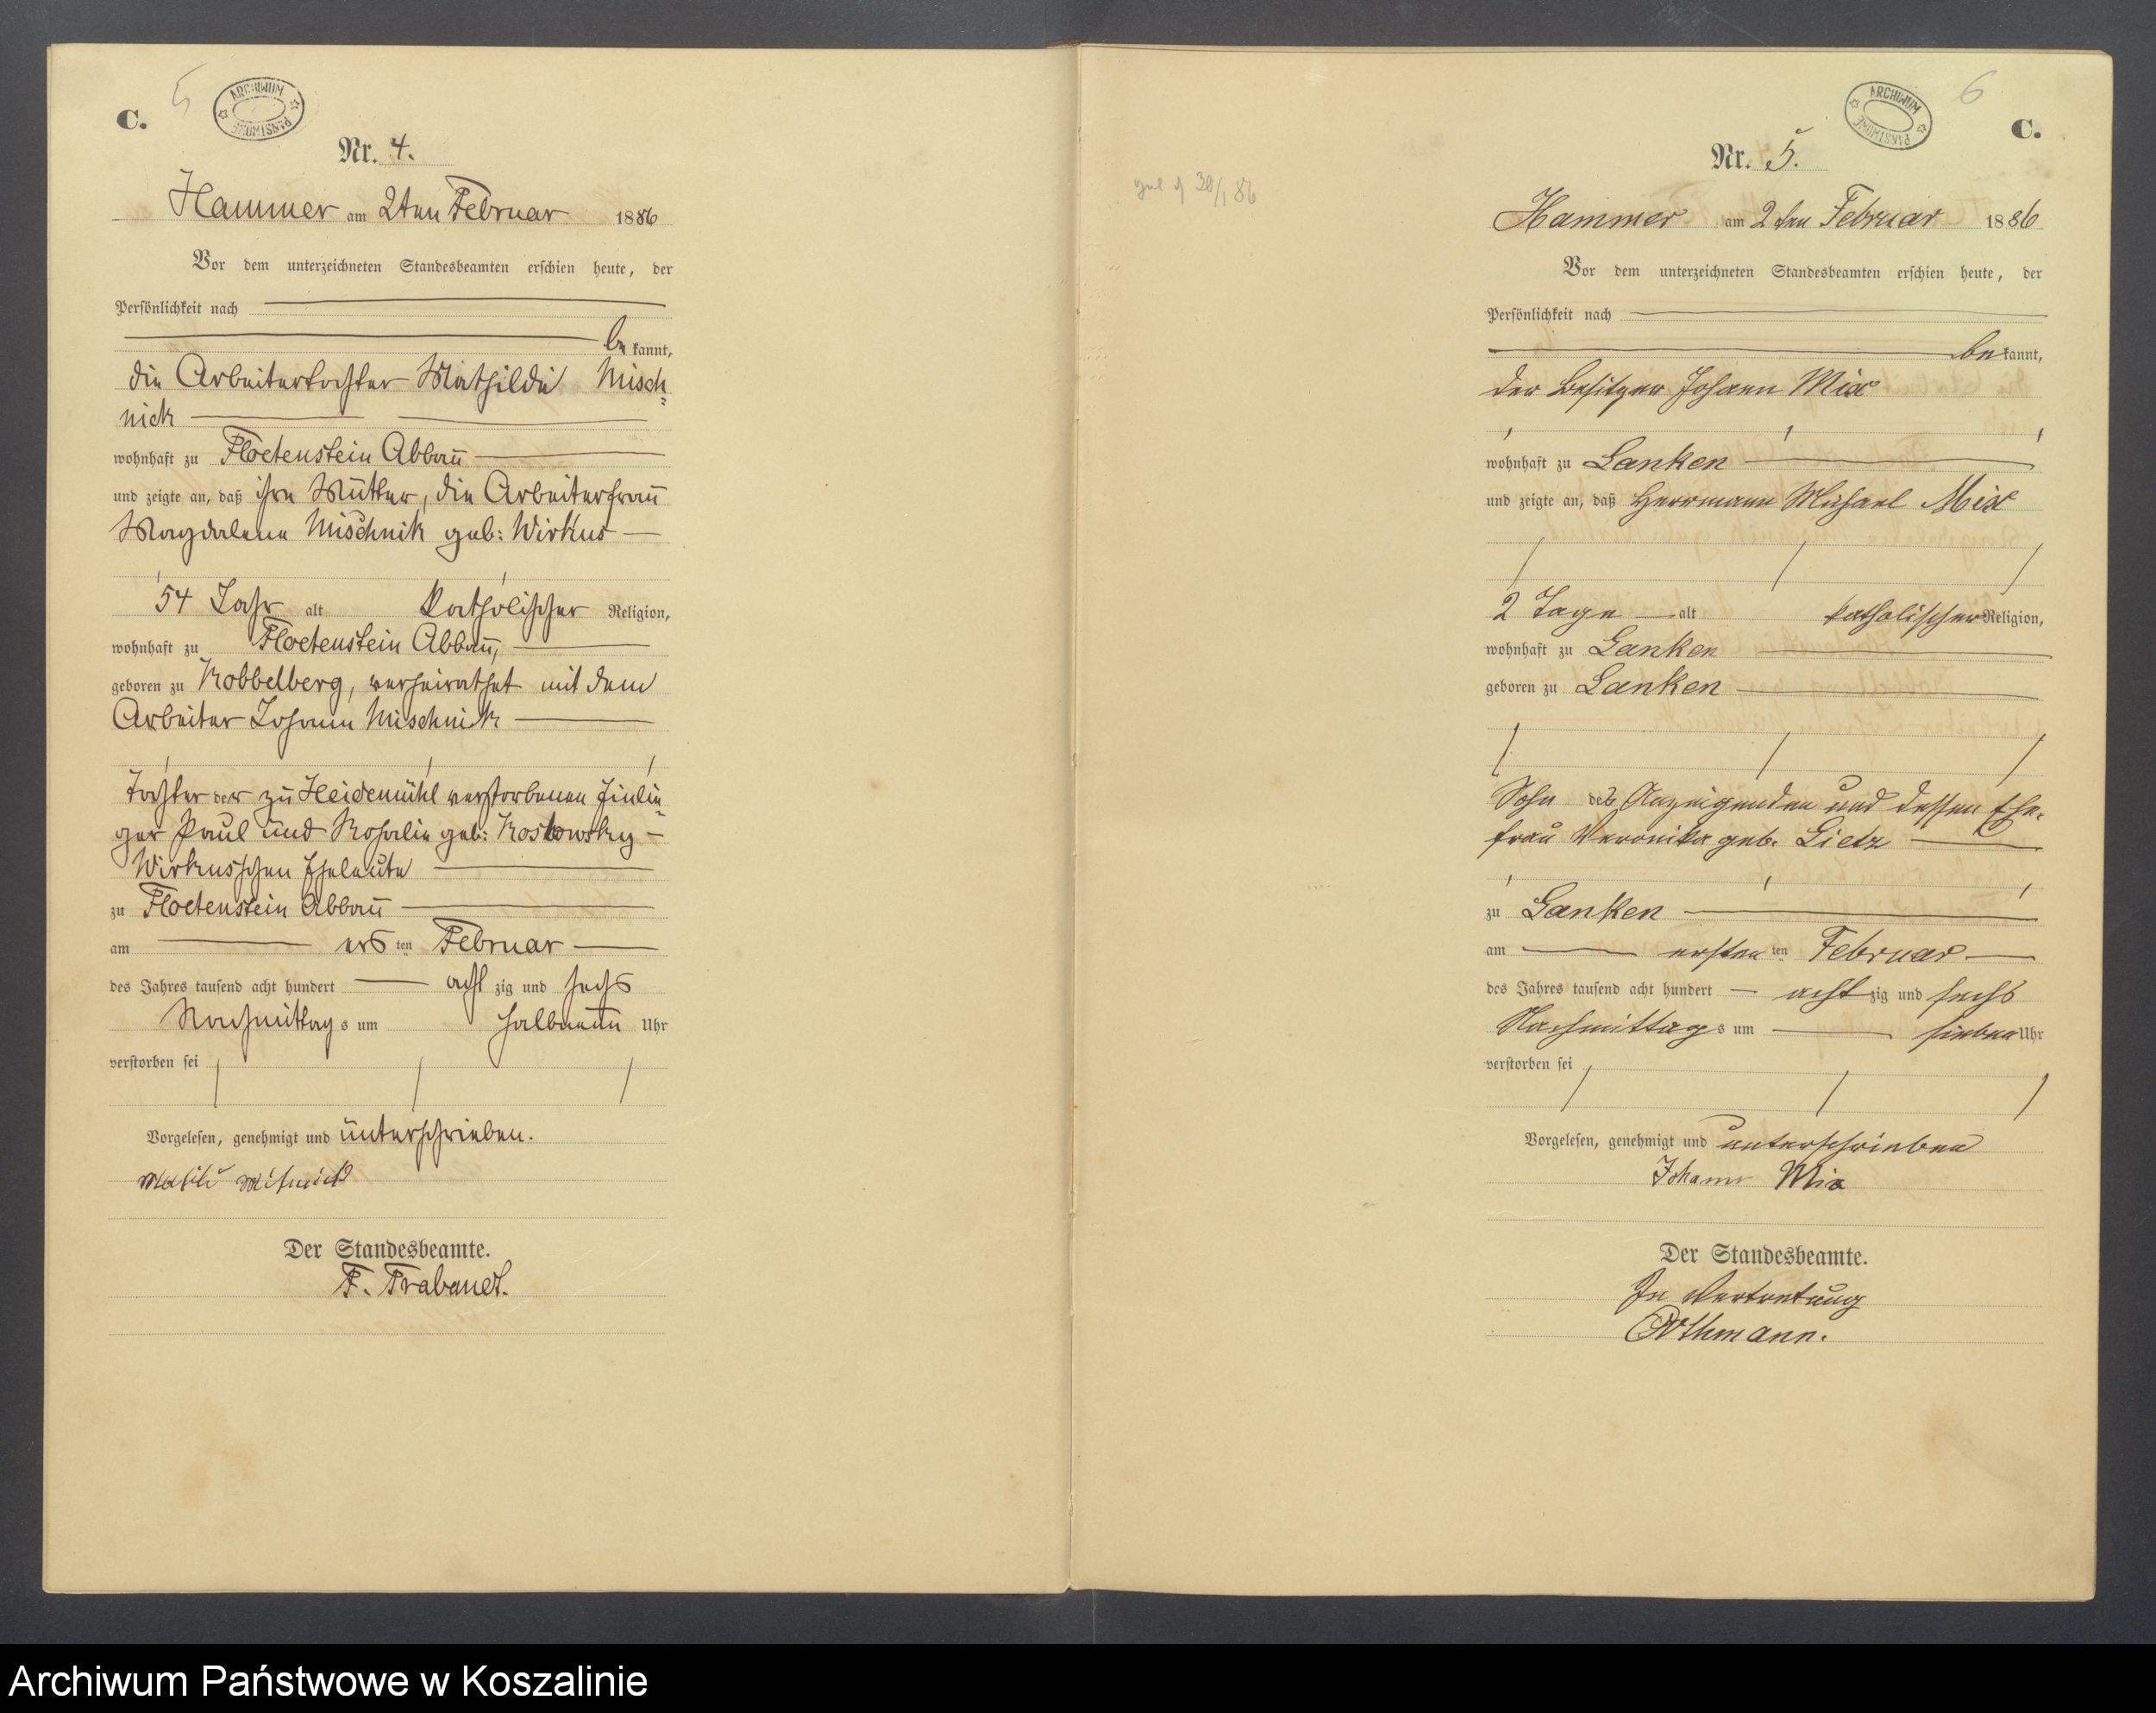 C.
5
ARCHIWUM PAŃSTWOWE
Nr. 4.
Hammer am 2ten Februar 1886
Vor dem unterzeichneten Standesbeamten erschien heute, der
Persönlichkeit nach
be kannt,
die Arbeitertochter Mathilde Misch=
nick
wohnhaft zu Floetenstein Abbau
und zeigte an, daß ihre Mutter, die Arbeiterfrau
Magdalena Mischnik geb: Wirkus
54 Jahr alt katholischer Religion,
wohnhaft zu Floetenstein Abbau,
geboren zu Kobbelberg, verheirathet mit dem
Arbeiter Johann Mischnik
Tochter der zu Heidemühl verstorbenen Einlie=
ger Paul und Rosalie geb: Kostowsky
Wirkusschen Eheleute
zu Floetenstein Abbau
am ers ten Februar
des Jahres tausend acht hundert acht zig und sechs
Nachmittag s um halbneun Uhr
verstorben sei
Vorgelesen, genehmigt und unterschrieben.
Der Standesbeamte.
F. Trabandt.
6
ARCHIWUM PAŃSTWOWE
C.
30/1 86
Nr. 5.
Hammer am 2ten Februar 1886
Vor dem unterzeichneten Standesbeamten erschien heute, der
Persönlichkeit nach
be kannt,
der Besitzer Johann Mix
wohnhaft zu Lanken
und zeigte an, daß Herrmann Michael Mix
2 Tage alt katholischer Religion,
wohnhaft zu Lanken
geboren zu Lanken
Sohn des Anzeigenden und dessen Ehe=
frau Veronika geb. Lietz
zu Lanken
am ersten ten Februar
des Jahres tausend acht hundert acht zig und sechs
Nachmittag s um sieben Uhr
verstorben sei
Vorgelesen, genehmigt und unterschrieben
Johann Mix
Der Standesbeamte.
In Vertretung
Othmann.
Archiwum Państwowe w Koszalinie